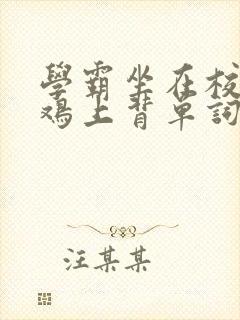 學霸坐在校
鸡上背单詞
汪某某